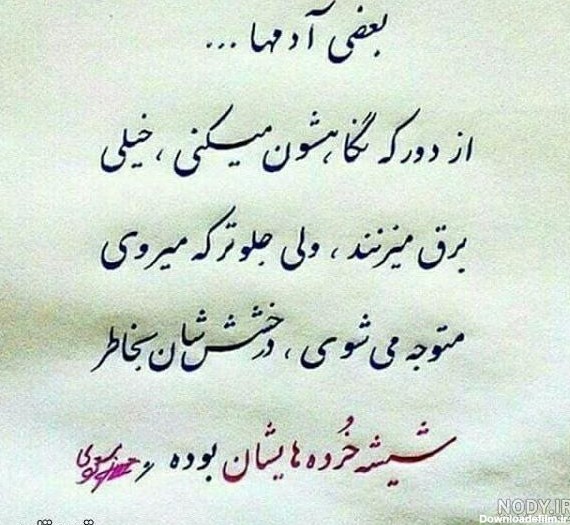 بعضی آدمها ...
از دور که نگاهشون میکنی ، خیلی
برق میزنند ، ولی جلوتر که میروی
متوجه می شوی ، درخشش شان بخاطر
شیشه خُرده هایشان بوده
NODY.IR
Downloadefilm.ir